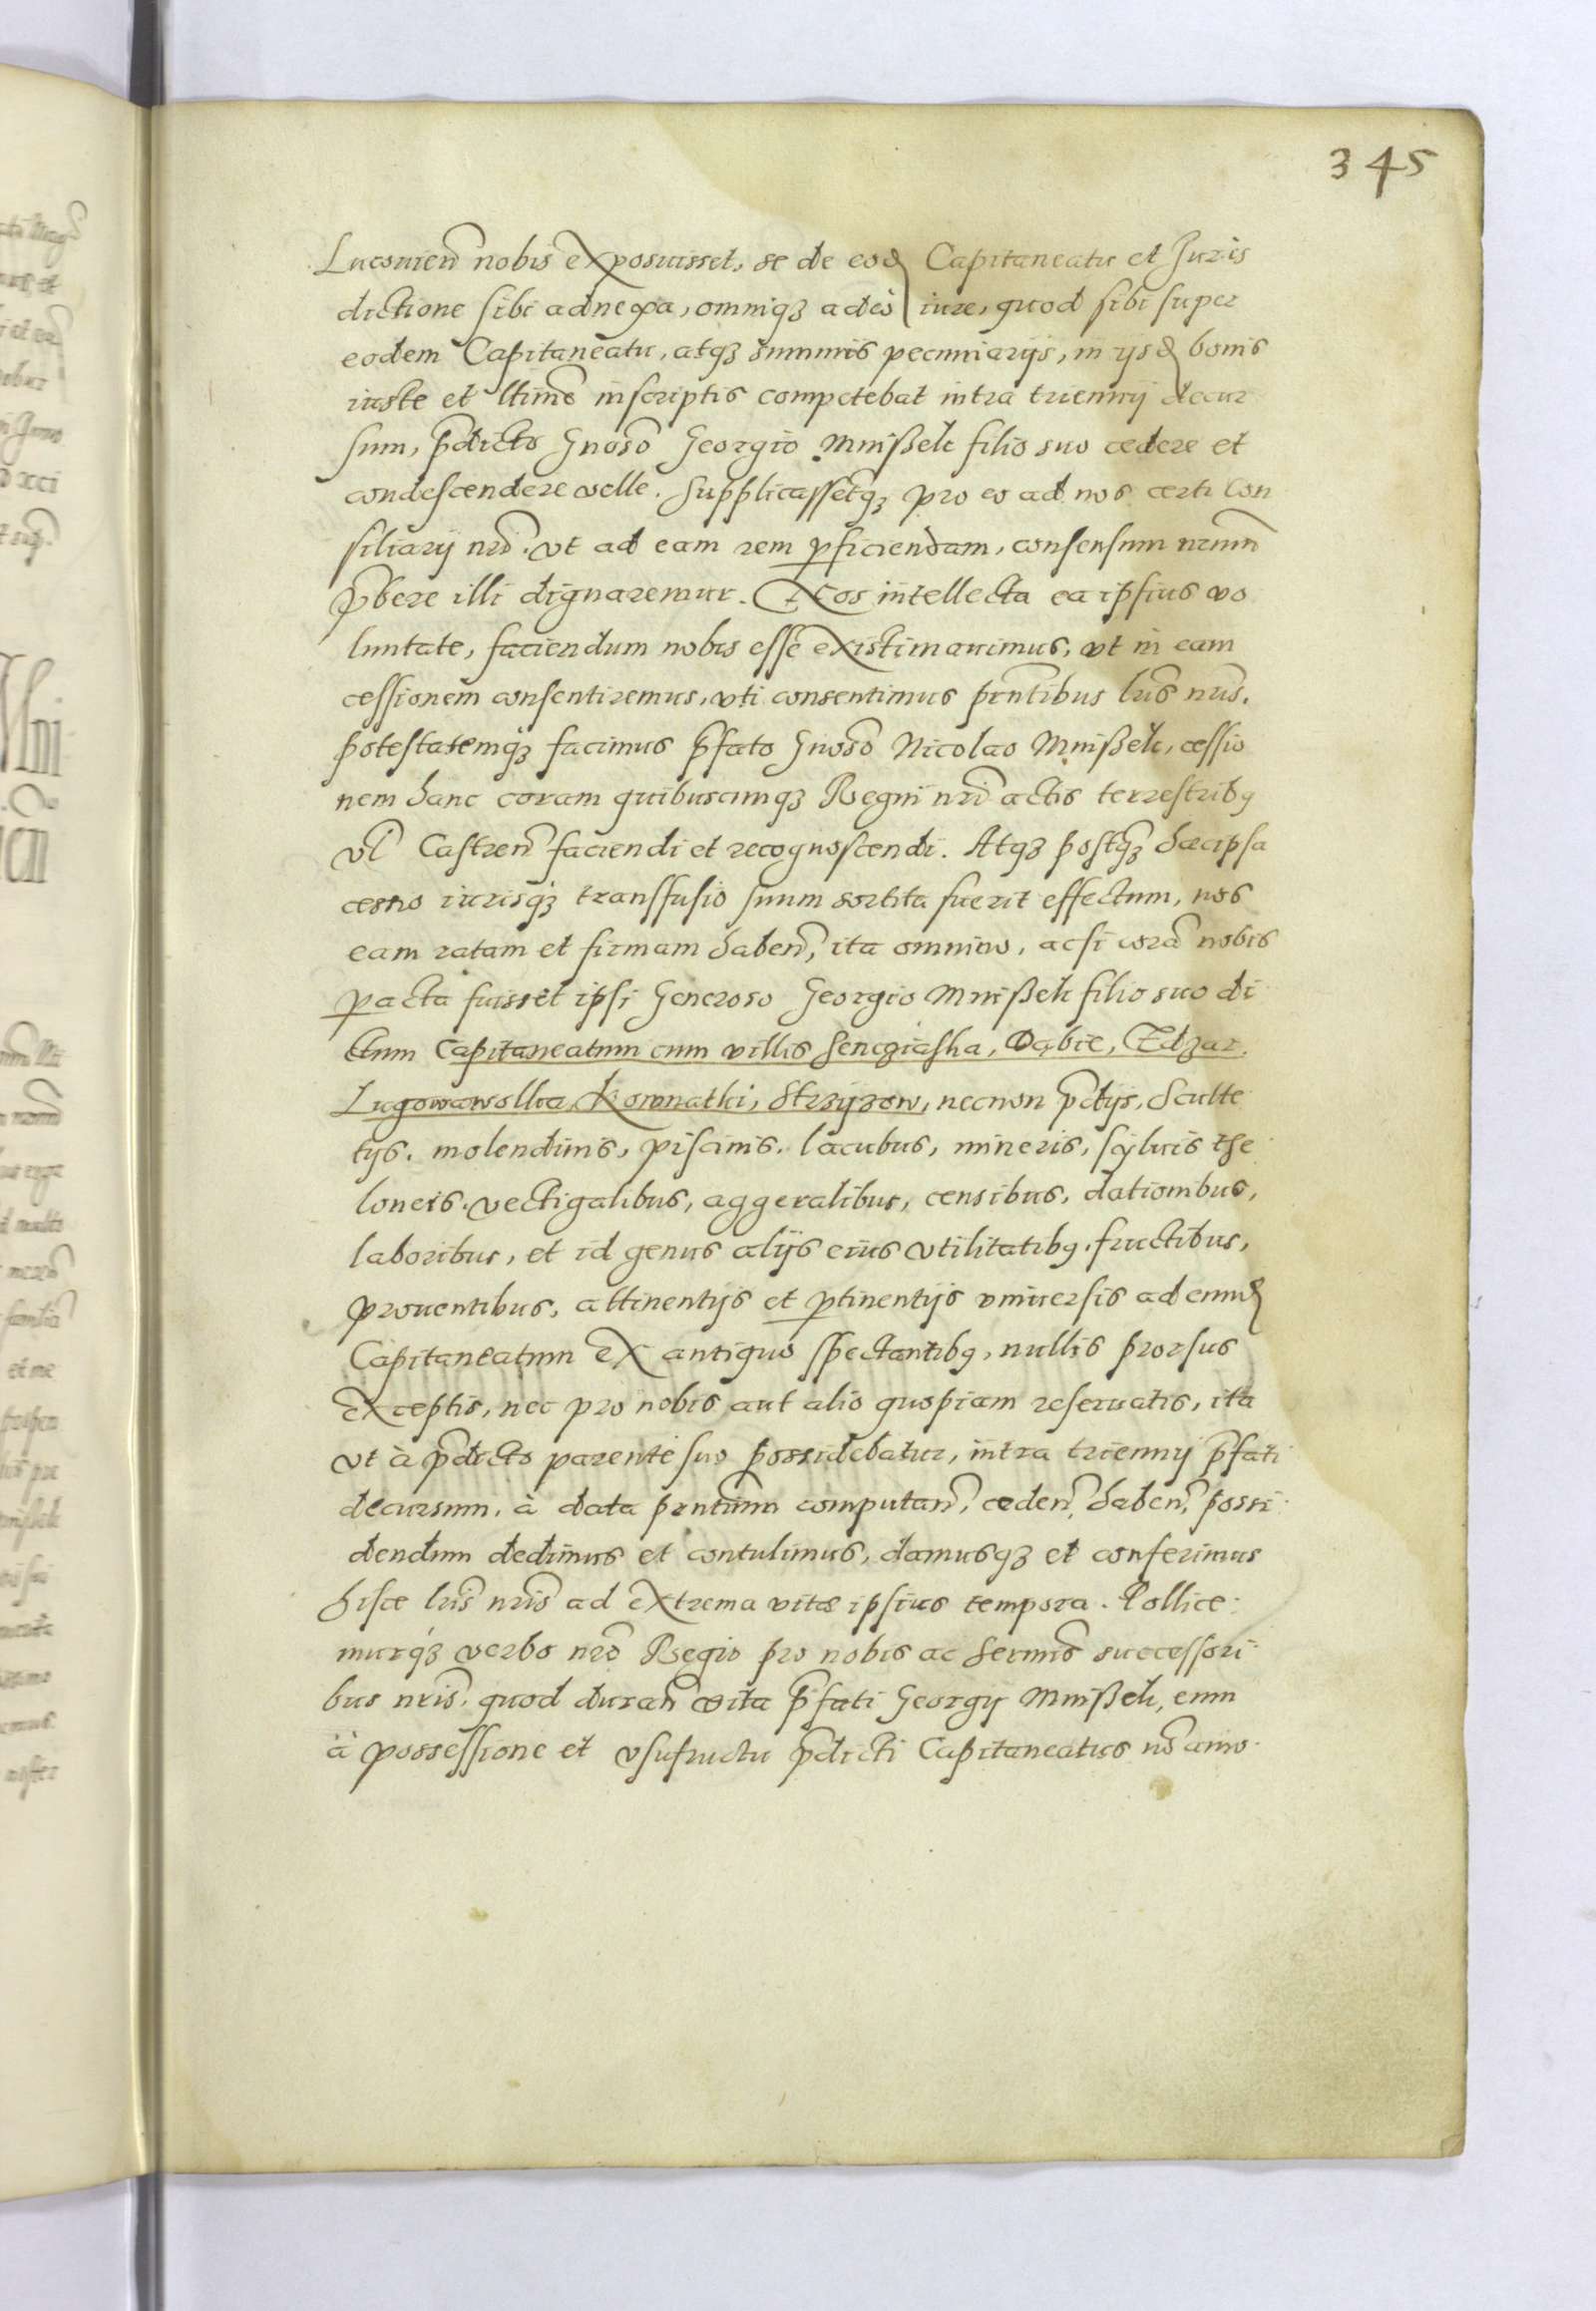 345
Lucouien̄ nobis exposuisset, se de eod Capitaneatu et Juris
dictione sibi adnexa, omniq3 adeo iure, quod sibi super
eodem Capitaneatu, atq3 summis pecuniarijs, in ijsd bonis
iuste et ltime inscriptis competebat intra triennij decur
sum, p̄dicto Gnoso Georgio Mnißek filio suo cedere et
condescendere velle. Supplicassetq3 pro eo ad nos certi Con
siliarij nr̄i. vt ad eam rem pficiendam, consensum nrum̄
p̄bere illi dignaremur. Nos intellecta ea ipsius vo
luntate, faciendum nobis esse existimauimus, vt in eam
cessionem consentiremus, vti consentimus pr̄ntibus lr̄is nr̄is.
potestatemq3 facimus p̄fato Gnoso Nicolao Mnißek, cessio
nem hanc coram quibuscunq3 Regni nr̄i actis terrestrib9
vl̄ Castren̄ faciendi et recognoscendi. Atq3 postq3 hæc ipsa
cessio iurisq3 transfusio suum sortita fuerit effectum, nos
eam ratam et firmam haben̄, ita omnino, acsi corā nobis
pacta fuisset ipsi Generoso Georgio Mnißek filio suo di
ctum Capitaneatum cum villis Sencziaska, Dąbie, Zdzar.
Lugowawolia, Kownatki, Strzyzow, necnon p̄dijs, Sculte
tijs. molendinis, piscinis. lacubus, mineris, syluis the
loneis. vectigalibus, aggeralibus, censibus, dationibus,
laboribus, et id genus alijs eius vtilitatib9. fructibus,
prouentibus, attinentijs et ptinentijs vniuersis ad eund
Capitaneatum ex antiquo spectantib9, nullis prorsus
exceptis, nec pro nobis aut alio quopiam reseruatis, ita
vt à p̄dicto parente suo possidebatur, intra triennij p̄fati
decursum. à data pr̄ntium computan̄, ceden̄, haben̄, possi
dendum dedimus et contulimus, damusq3 et conferimus
hisce lr̄is nr̄is ad extrema vitæ ipsius tempora. Pollice:
murq3 verbo nr̄o Regio pro nobis ac Sermis successori
bus nr̄is. quod duran̄ vita p̄fati Georgij Mnißek, eum
à possessione et vsufructu p̄dicti Capitaneatus nō amo